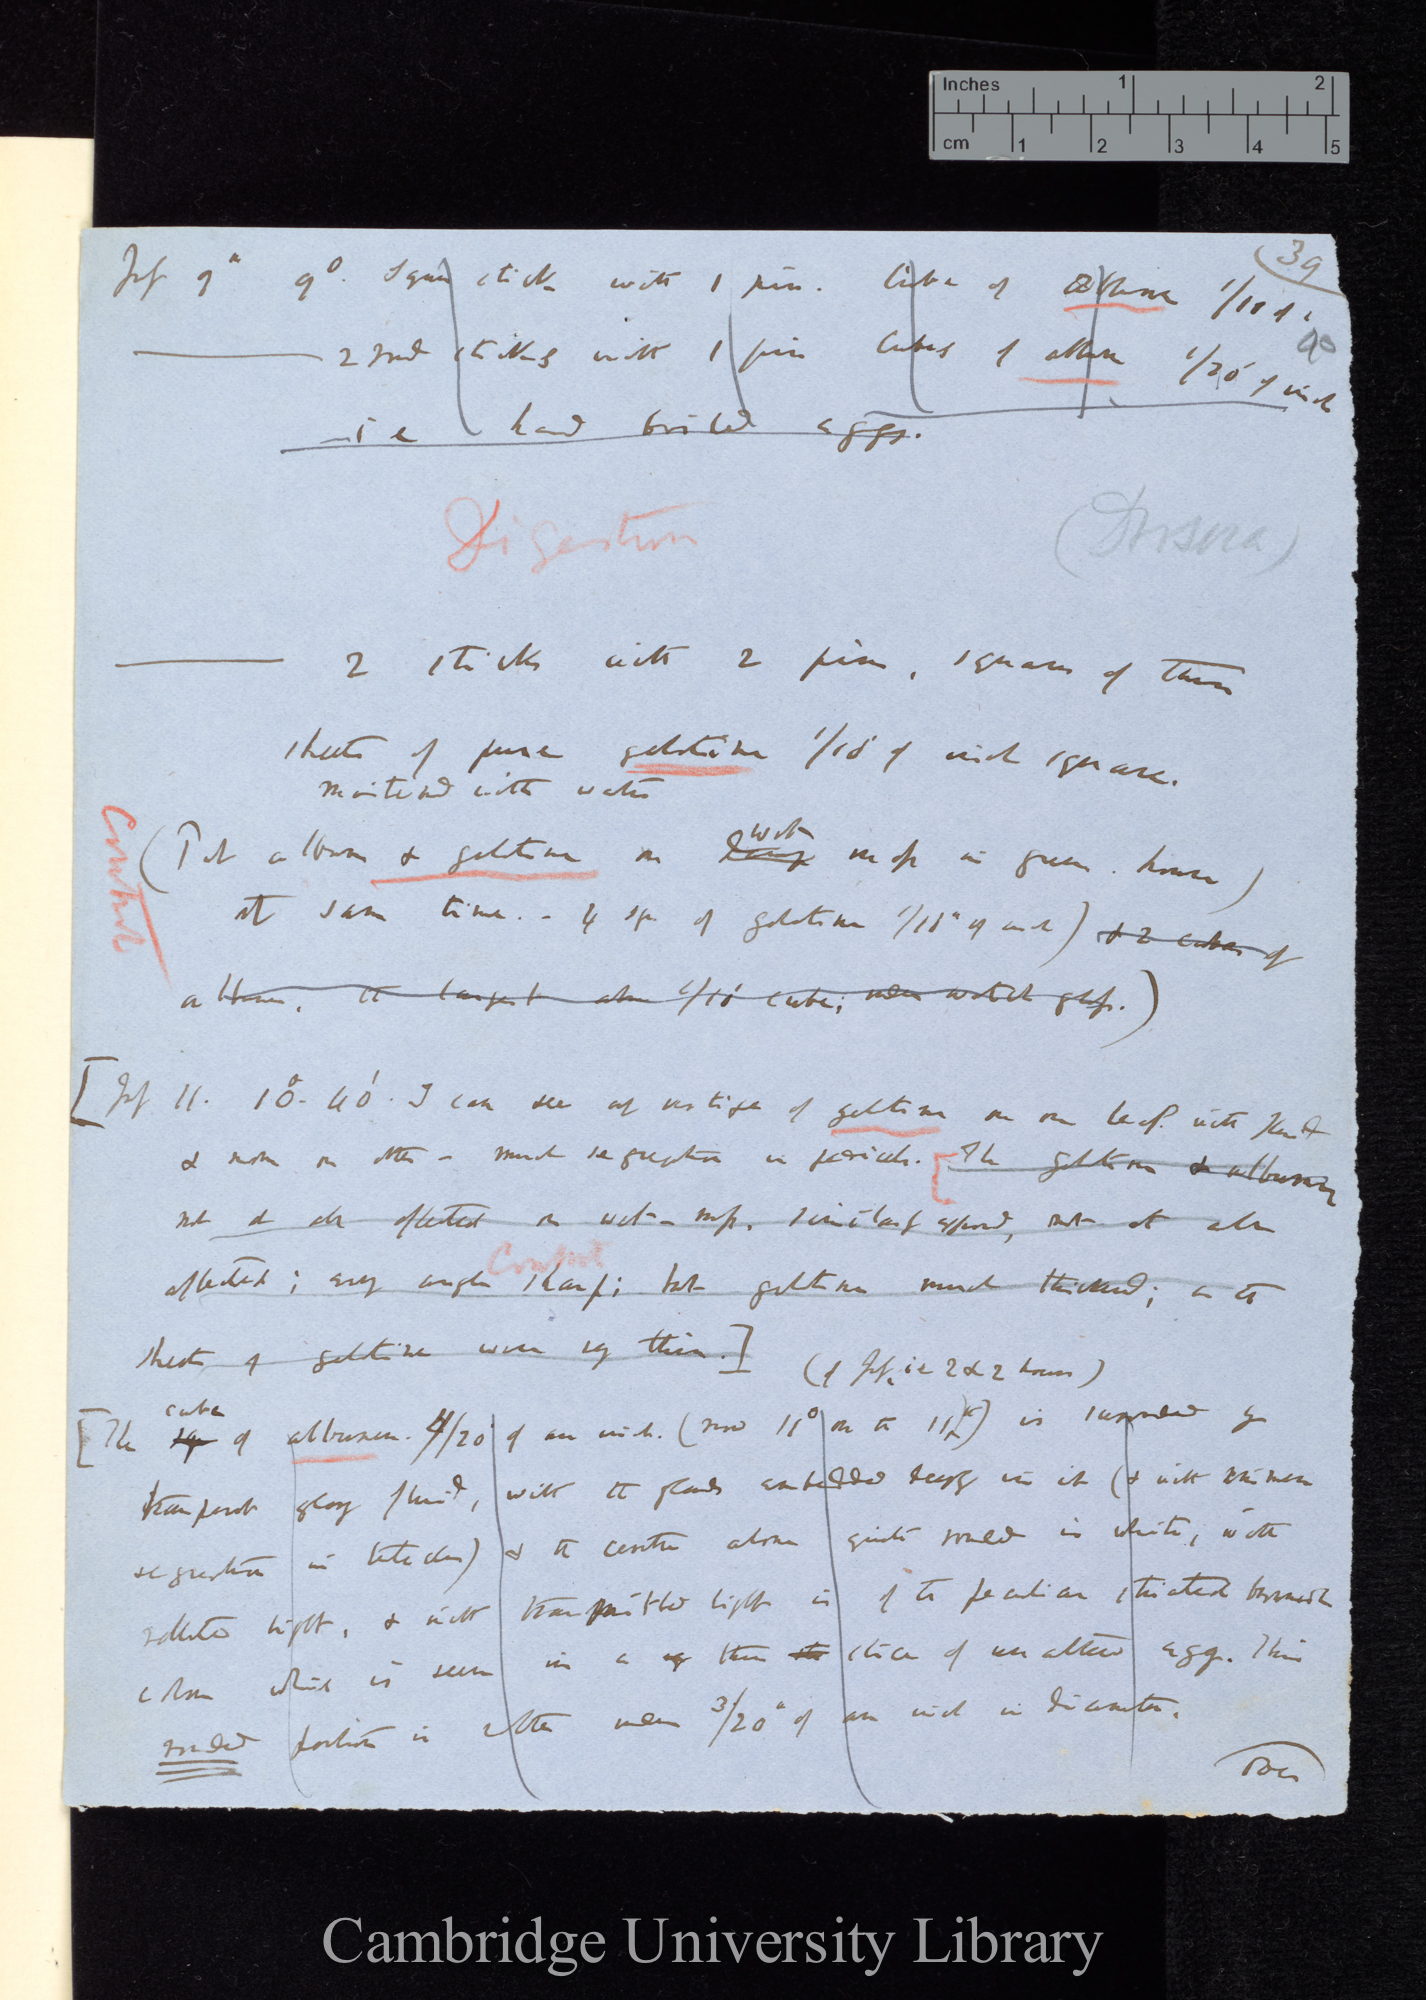 Inches 1 2
cm 1 2 3 4 5
39
July 9th 9°. Square sticks with 1 pin. Cube of albumen 1/10 of i
40
2 sticks with 1 pin Cubes of albumen 1/20 of inch
i e hard boiled eggs.
Digestion
(Drosera)
2 sticks with 2 pins, squares of thin
sheets of pure gelatine 1/10 of inch square.
moistened with water
Control
wet
(Put albumen & gelatine on damp moss in green house)
at same time. - 4 sq. of gelatine 1/10th of inch) & 2 cubes of
albumen, the largest about 1/10 cube; under watch glass.)
[July 11. 10° 40'. I can see no vestige of gelatine on one leaf. with
& none on other - much segregation in pedicels. [The gelatine & albumen
not at all affected on wet moss. Similarly exposed, not at all
Control
affected; every angle sharp; but gelatine much thickened; as the
sheets of gelatine were very thin.]
(of July, i e 2 x 2 hours)
cube
[The sq of albumen. 4/20 of an inch. (now 11° on the 11th) is surrounded by
transparent glairy fluid, with the glands embedded deeply in it (& with immense
segregation in tentacles) & the centre alone quite rounded is white, with
reflected light, & with transmitted light is of the peculiar striated brownish
colour which is seen in a very thin slice of unaltered egg. This
rounded portion is rather under 3/20th of an inch in diameter.
Over
Cambridge University Library